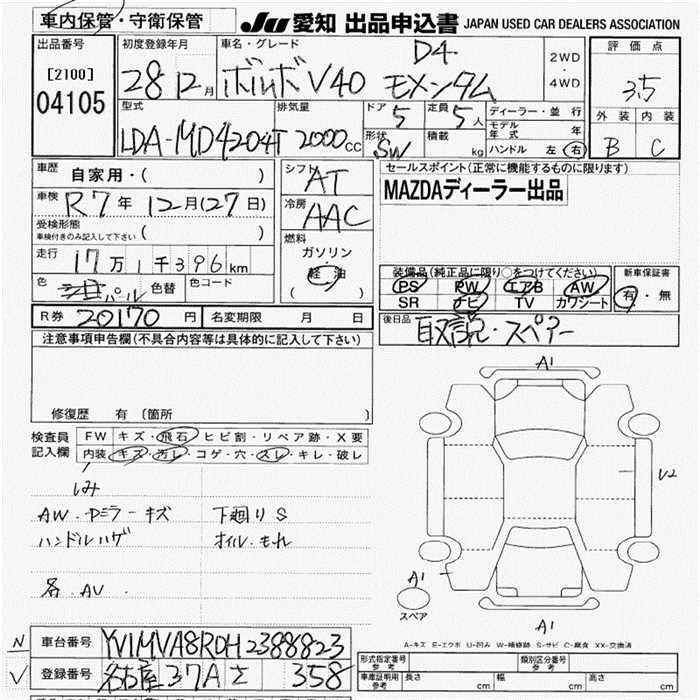 車内保管・守衛保管
JU 愛知 出品申込書 JAPAN USED CAR DEALERS ASSOCIATION
出品番号
[2100]
04105
初度登録年月
28 12月
車名・グレード
D4
ボルボ V40 モメンタム
2WD
・
4WD
評価点
3.5
外装 内装
B C
型式
LDA-MD4204T
排気量
2000cc
ドア
5
定員
5人
形状
SW
積載
kg
ディーラー・並行
モデル年式 年
ハンドル 左 右
車歴
自家用・( )
車検
R7年12月(27日)
受検形態
車検付きのみ記入して下さい ( )
走行
17万1千396km
色
パール 色替
色コード
シフト
AT
冷房
AAC
燃料
ガソリン
・
軽油
( )
セールスポイント(正常に機能するものに限ります)
MAZDAディーラー出品
装備品(純正品に限り○をつけてください)
PS PW エアB AW
SR ナビ TV カワシート
新車保証書
有・無
R券 20170円
名変期限 月 日
後日品
取説・スペアー
注意事項申告欄(不具合内容等は具体的に記入して下さい)
修復歴 有 〔箇所
検査員
記入欄
FW キズ・飛石・ヒビ割・リペア跡・X要
内装 キズ・汚レ・コゲ・穴・スレ・キレ・破レ
シミ
AW・Dミラーキズ 下廻りS
ハンドルハゲ オイルもれ
各AU
A1
U2
A1
スペア
A1
A-キズ E-エクボ U-凹み W-補修跡 S-サビ C-腐食 XX-交換済
N
車台番号 YV1MVA8RDH2388823
V
登録番号 名古屋 37A さ 358
形式指定番号
参考
類別区分番号
参考
車庫証明用
参考
長さ cm
幅 cm
高さ cm